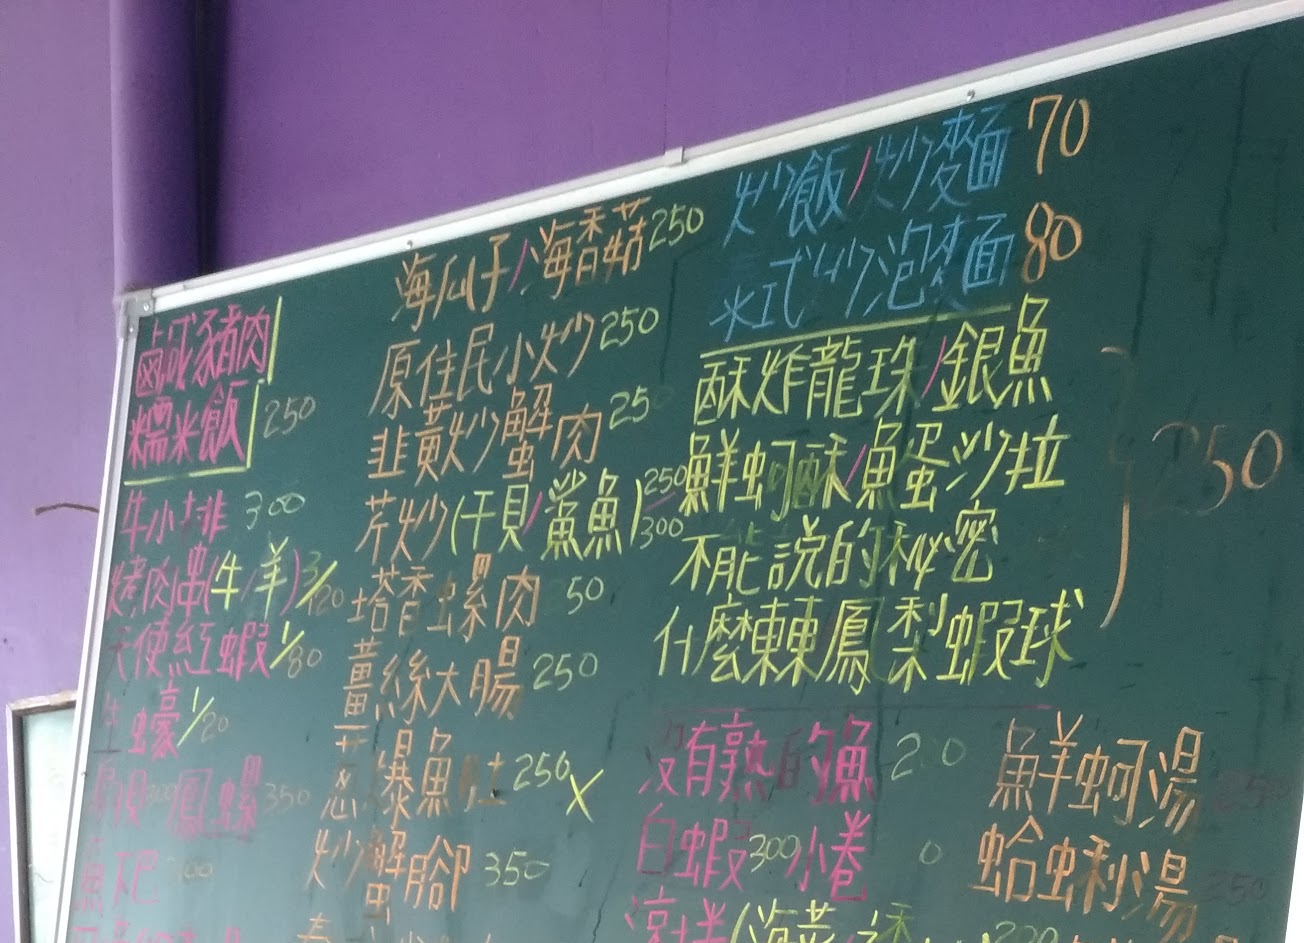 鹹豬肉
糯米飯 250
牛小排 300
烤肉串(牛/羊) 3/120
天使紅蝦 1/80
生蠔 1/20
鳳螺 350
魚下巴
海瓜子/海香菇 250
原住民小炒 250
韭黃炒蟹肉 25
芹炒(干貝/鯊魚) 250/300
塔香螺肉 50
薑絲大腸 250
蔥爆魚肚 250 X
炒蟹腳 350
炒飯/炒麵 70
式炒泡麵 80
酥炸龍珠/銀魚
鮮蚵酥/魚蛋沙拉
不能說的秘密
什麼東東鳳梨蝦球
250
沒有熟的魚 2 0
白蝦 300 小卷 0
涼拌(海菜
鮮蚵湯 250
蛤蜊湯 350